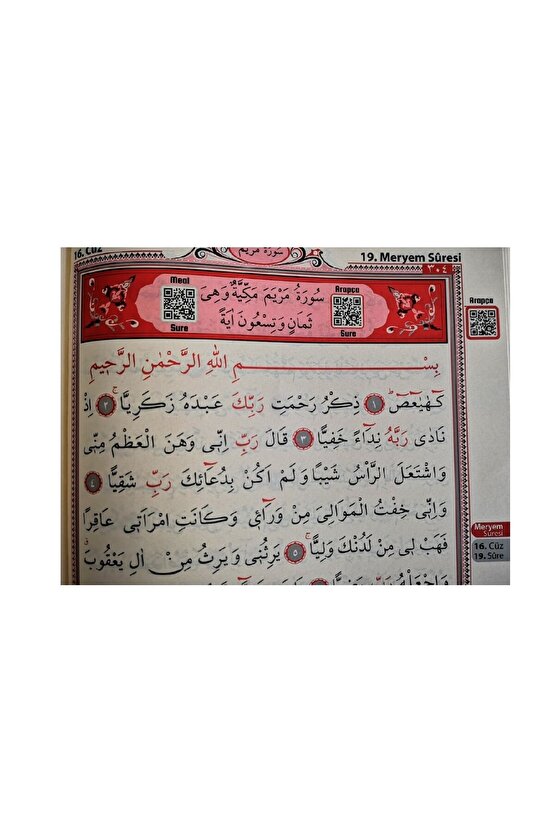 16. Cüz
سورة مريم
19. Meryem Sûresi
٣٠٤
Meal
Sure
سُورَةُ مَرْيَمَ مَكِّيَّةٌ وَهِىَ
ثَمَانٍ وَتِسْعُونَ اٰيَةً
Arapça
Sure
Arapça
بِسْمِ اللّٰهِ الرَّحْمٰنِ الرَّحٖيمِ
كٓهٰيٰعٓصٓ ۝١ ذِكْرُ رَحْمَتِ رَبِّكَ عَبْدَهُ زَكَرِيَّا ۝٢ اِذْ
نَادٰى رَبَّهُ نِدَٓاءً خَفِيًّا ۝٣ قَالَ رَبِّ اِنّٖى وَهَنَ الْعَظْمُ مِنّٖى
وَاشْتَعَلَ الرَّاْسُ شَيْبًا وَلَمْ اَكُنْ بِدُعَٓائِكَ رَبِّ شَقِيًّا ۝٤
وَاِنّٖى خِفْتُ الْمَوَالِىَ مِنْ وَرَٓاءٖى وَكَانَتِ امْرَاَتٖى عَاقِرًا
فَهَبْ لٖى مِنْ لَدُنْكَ وَلِيًّا ۝٥ يَرِثُنٖى وَيَرِثُ مِنْ اٰلِ يَعْقُوبَ
Meryem
Sûresi
16. Cüz
19. Sûre